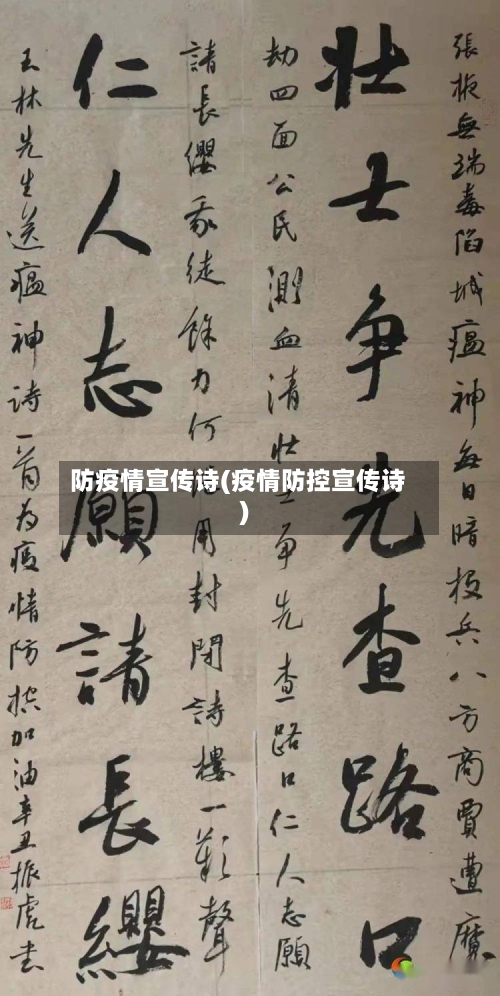 張掖無端毒陷城瘟神每日暗
兵八方商賈遭魔
壮士争先查路口
劫四面公民測血清壮士争先查路口仁人志願
請長纓
徒餘力何
用封閉詩樓一歎聲
仁人志願請長纓
玉林先生送瘟神诗一首为疫情防控加油辛丑振虎书
防疫情宣传诗(疫情防控宣传诗
)